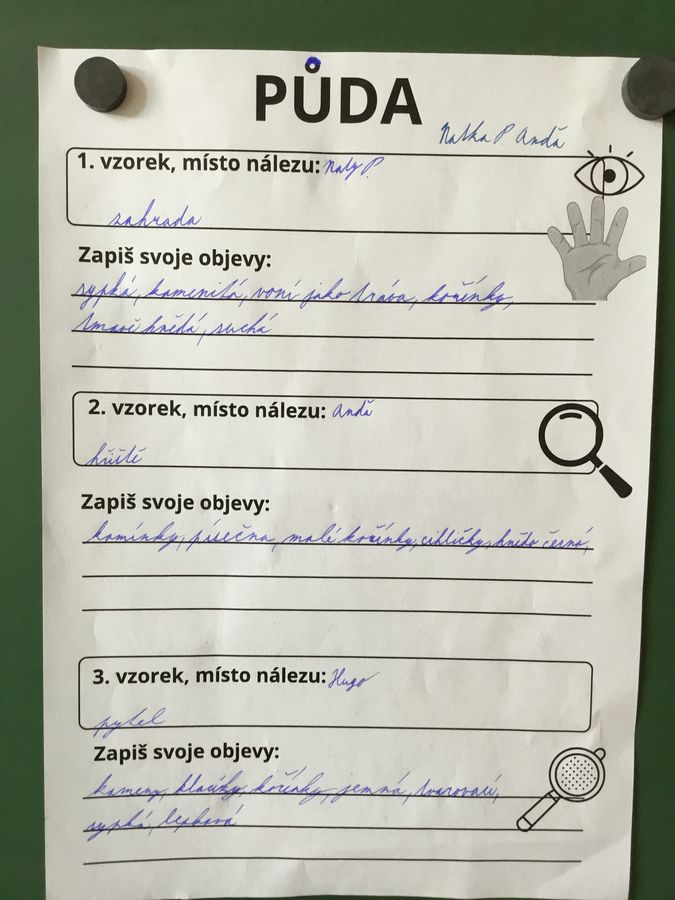 PŮDA
Natka P Andă
1. vzorek, místo nálezu: Naty P.
zahrada
Zapiš svoje objevy:
sypká, kamenitá, voní jako tráva, kořínky,
tmavě hnědá, suchá
2. vzorek, místo nálezu: Andě
hřiště
Zapiš svoje objevy:
kamínky, písečna, malé kořínky, cihličky, hnědo černá,
3. vzorek, místo nálezu: Hugo
pytel
Zapiš svoje objevy:
kameny, klacíky, kořínky, jemná, tvarovací,
sypká, lepkavá